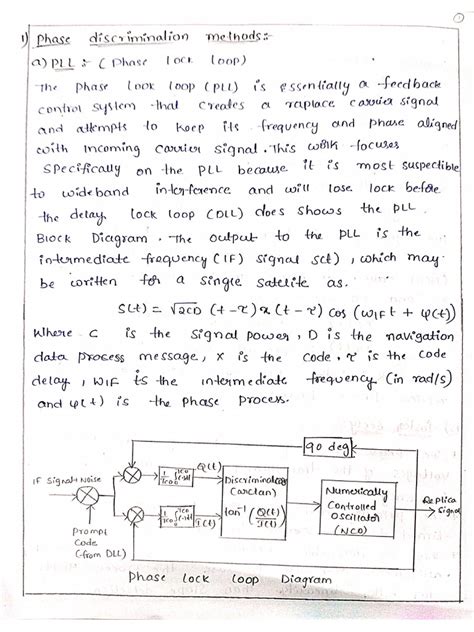 ①
1) Phase discrimination methods:-
a) PLL :- ( Phase Lock loop)
The phase Look loop (PLL) is essentially a feedback
control system that creates a raplace carrier signal
and attempts to keep its frequency and phase aligned
with incoming carrier signal. This work focuses
specifically on the PLL because it is most suspectible
to wideband interference and will lose lock before
the delay, lock loop (DLL) does shows the PLL
Block Diagram. The output to the PLL is the
intermediate frequency (IF) signal s(t), which may
be written for a single satellite as.
S(t) = √2CD (t-τ) x (t-τ) cos (WIF t + φ(t))
Where C is the signal power, D is the navigation
data process message, x is the code. τ is the code
delay, WIF is the intermediate frequency (in rad/s)
and φ(t) is the phase process.
90 deg
IF Signal+Noise
Q(t)
Discriminator
(arctan)
tan⁻¹ (Q(t)/I(t))
I(t)
Numerically
Controlled
Oscillator
(NCO)
Replica
Signal
Prompt
Code
(from DLL)
Phase lock loop Diagram